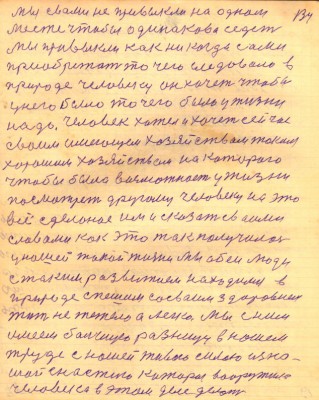 134
Мы с вами не привыкли на одном
месте чтобы одинаково сидет
Мы привыкли как никогда сами
приобретат то чего следовало в
природе человеку он хочет чтобы
у него было то чего было у жизни
надо. Человек хотел и хочет сейчас
своим имеющем хозяйством таким
хорошим хозяйством на которого
чтобы было возможност у жизни
посмотрет другому человеку на это
всё сделоное им и сказат своими
словами как это так получилос
у нашей такой жизни Мы обеи люди
с таким развитием находимся в
природе с пешим со своим здоровием
тот не тежело а легко, Мы с ним
имеем большую разницу в нашем
труде с нашей живою силою
шой снастию которая вооружино
человека в этом деле делат